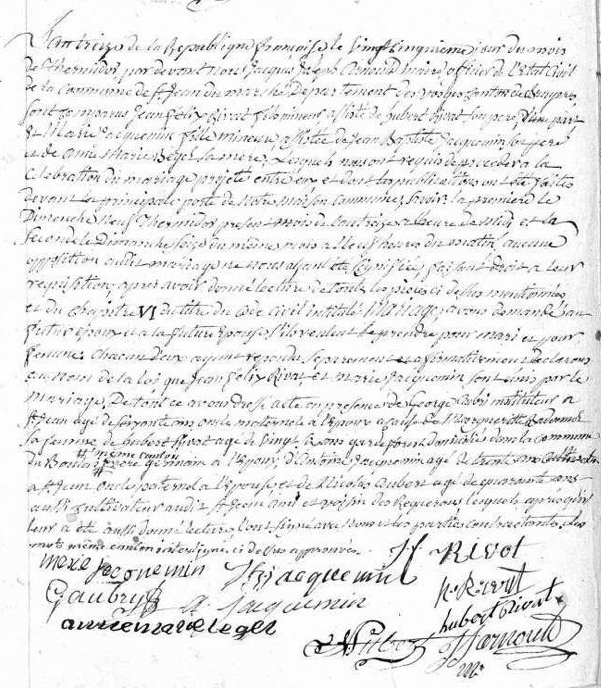 L'an treize de la Republique française le vingt cinquieme jour du mois
de Thermidor par devant Nous Jacques Joseph Arnould maire officier de l'état civil
de la Commune de St Jean du marché Departement des vosges Canton de Bruyeres
sont comparus Jean Felix Rivat fils mineur assisté de hubert Rivat son pere, d'une part
et Marie Jacquemin fille mineure assistée de Jean Baptiste Jacquemin son pere
et de Anne Marie Leger sa mere, Lesquels nous ont requis de proceder a la
Celebration du mariage projeté entre eux et dont les publications ont été faites
devant la principale porte de Notre maison Commune, savoir la premiere le
Dimanche Neuf Thermidor present mois de l'an treize a l'heure de midi et la
seconde le dimanche seize du même mois a neuf heures du matin, aucune
opposition audit mariage ne nous ayant été signifiée, faisant droit a leur
requisition, apres avoir donné lecture de toutes les pieces ci dessus mentionnées
et du Chapitre VI du titre du code civil intitulé Mariage, avons demandé au
futur epoux et a la future epouse s'ils veulent se prendre pour mari et pour
femme, chacun d'eux ayant repondu separement et affirmativement declarons
au nom de la loi que Jean Felix Rivat et marie Jacquemin sont unis par le
mariage, De tout ce avons dressé acte en presence de George instituteur a
St Jean agé de soixante ans oncle maternel a l'epoux a cause de Marguerite
sa femme de hubert Rivat agé de vingt ans domicilié dans la Commune
du Boulay frere germain a l'epoux, d'Antoine Jacquemin agé de trente ans cultivateur
même canton
a St Jean oncle paternel a l'epouse et de Nicolas Aubert agé de quarante ans
aussi cultivateur audit St Jean ami et voisin des Requerans lesquels apres qu'il
leur a été aussi donné lecture l'ont signé avec Nous et les parties contractantes, les
mots même canton interligne ci dessus approuvés.
J F RIVOT
marie jacquemin
Jb jacquemin
h. Rivat
G aubry
A Jaquemin
hubert Rivat
anne marie leger
N Aubert
JJ Arnould
m.